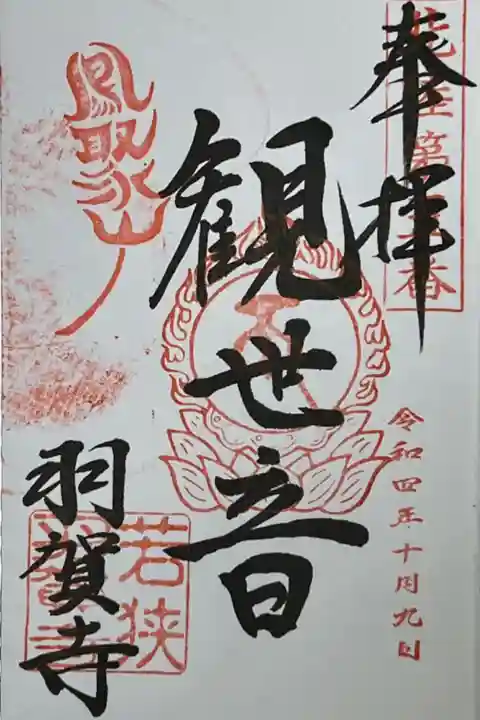 奉拝
観世音
羽賀寺
令和四年十月九日
鳳聚山
若狭
羽賀寺